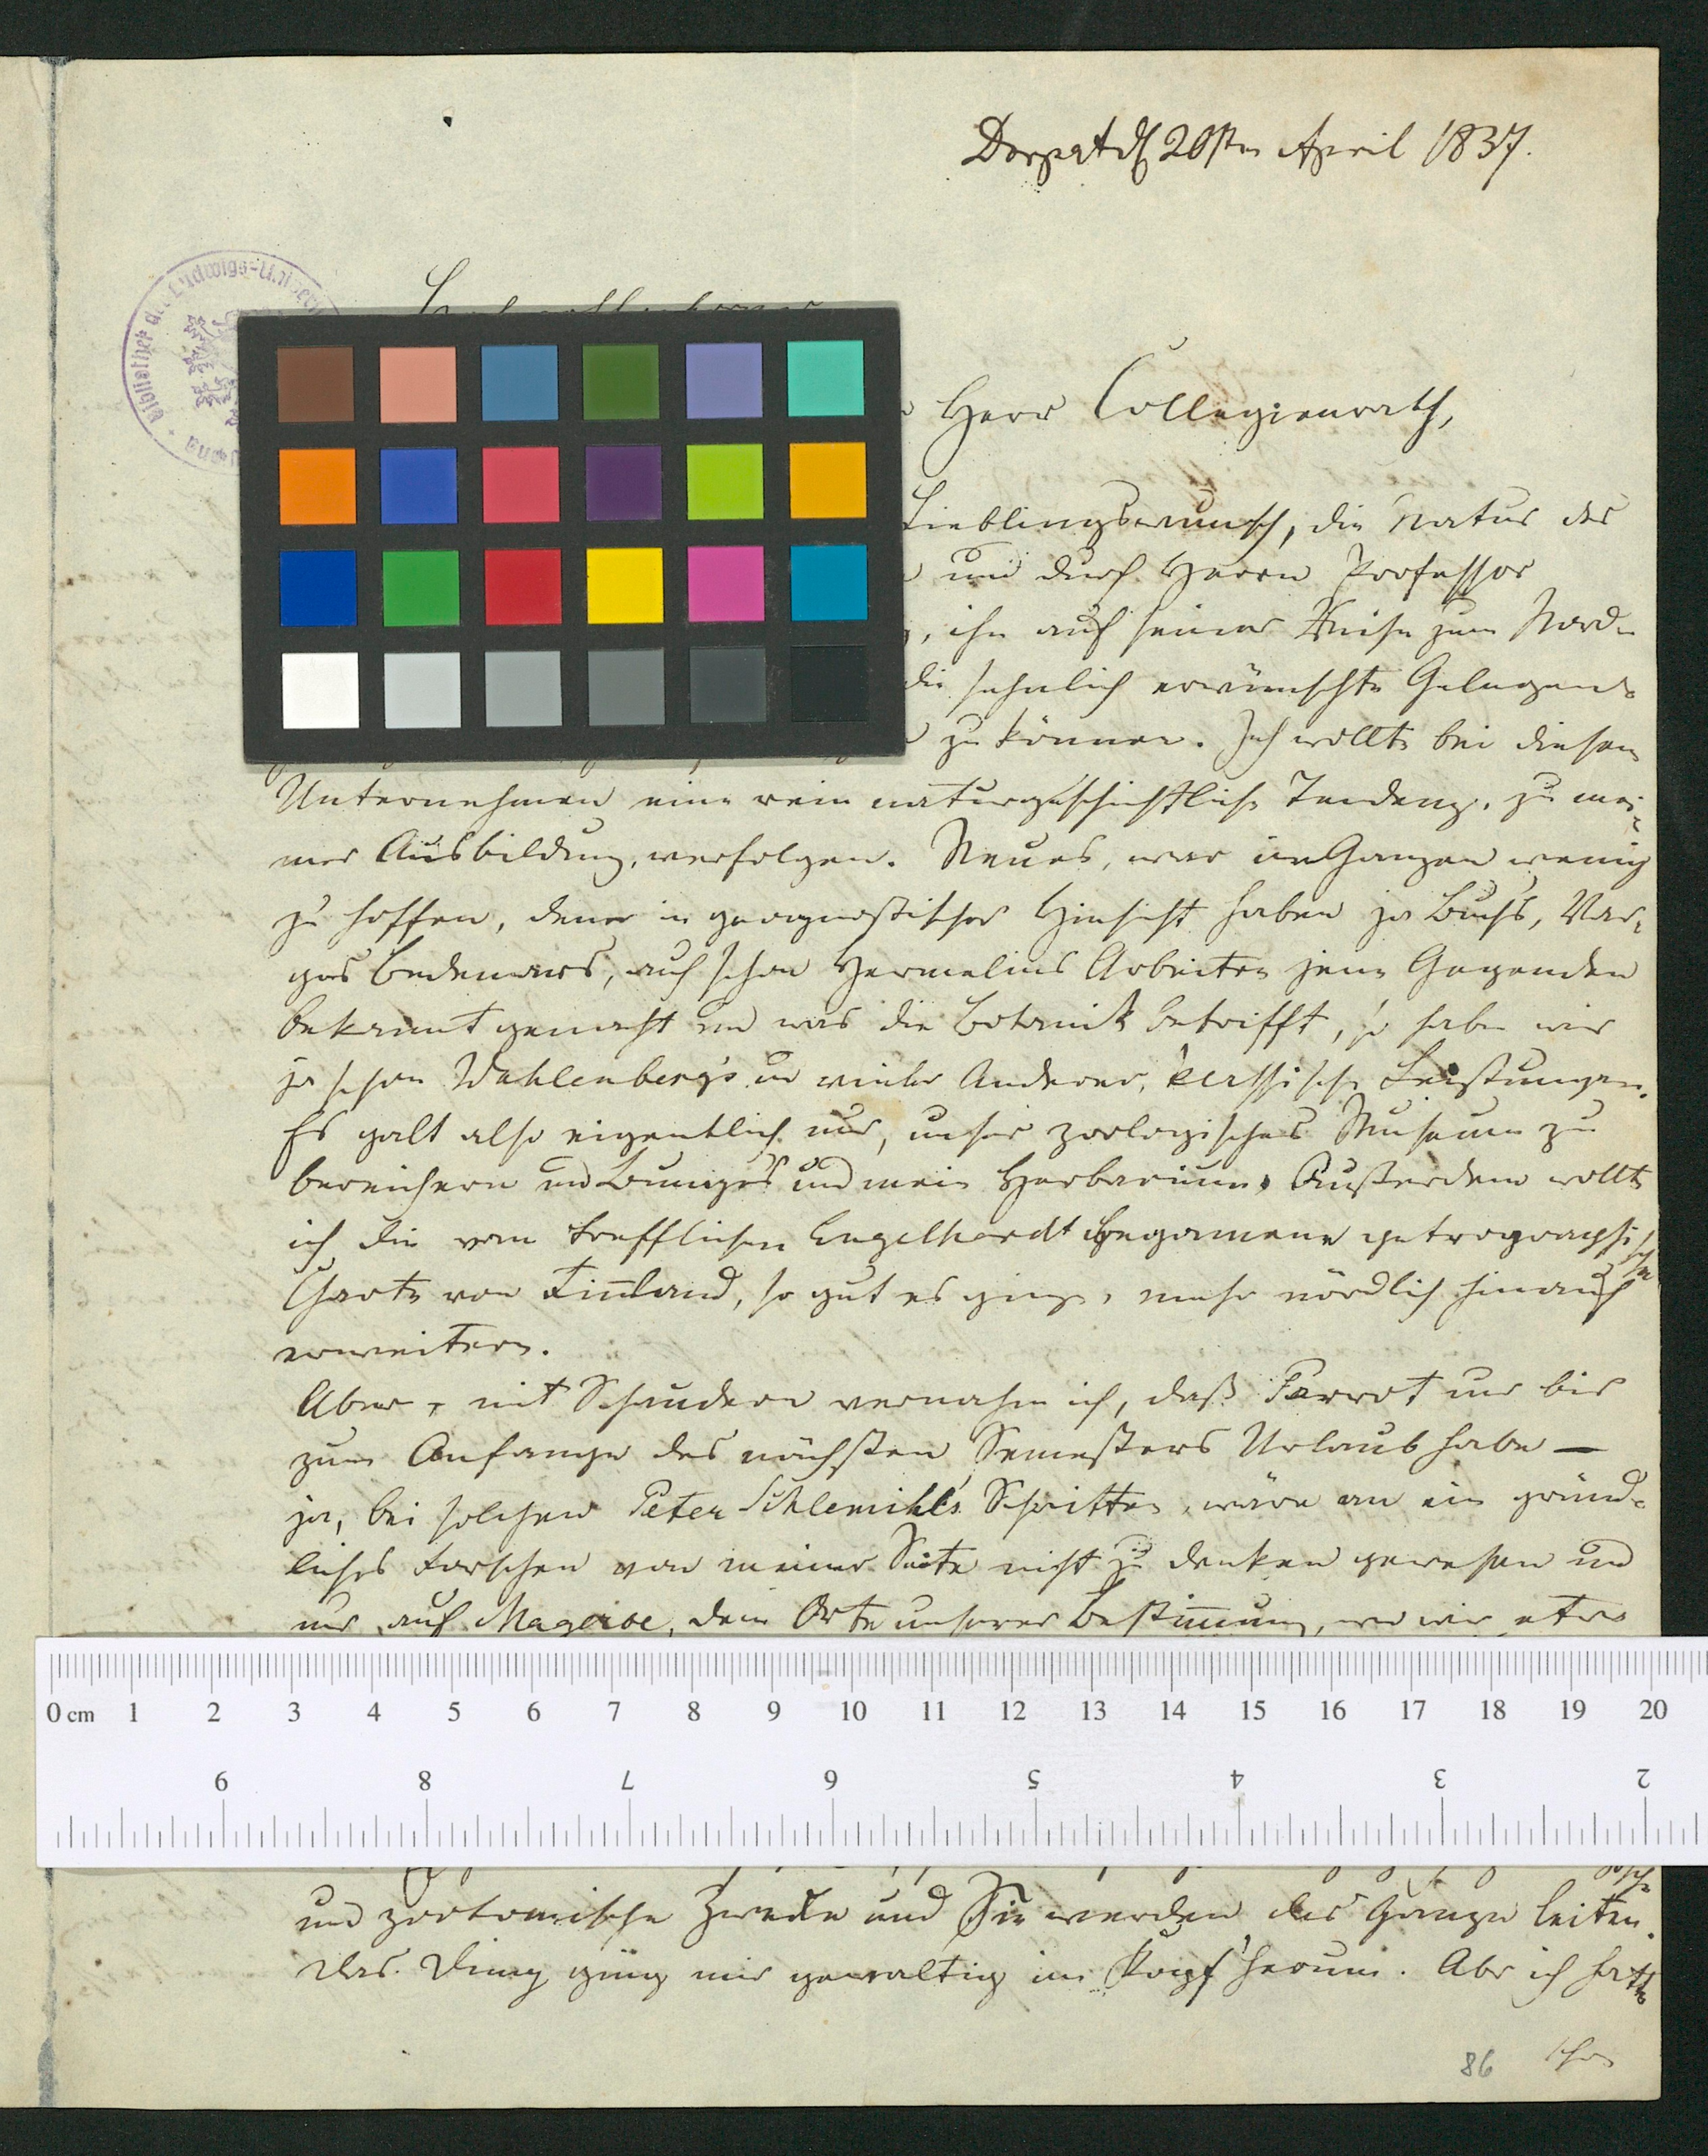 Dorpat d 20sten April 1837.
Bibliothek d. Ludwigs-Univer
Herr Collegienrath,
Lieblingswunsch, die Natur des
und durch Herrn Professor
, ihn auf seiner Reise zum Nord-
die sehnlich erwünschte Gelegen-
zu können. Ich wollte bei diesem
Unternehmen eine rein naturgeschichtliche Tendenz, zu mei-
ner Ausbildung, verfolgen. Neues, war im Ganzen wenig
zu hoffen, denn in geognostischer Hinsicht haben ja Buchs, Var-
gas Bedemars, auch schon Hermelins Arbeiten jene Gegenden
bekannt gemacht und was die Botanik betrifft, so haben wir
ja schon Wahlenberg's und vieler Anderer, klassische Leistungen.
Es galt also eigentlich nur, unser zoologisches Museum zu
bereichern und Bunges und mein Herbarium. Außerdem wollte
ich die vom trefflichen Engelhardt begonnene petrographische
Charte von Finnland, so gut es ginge, mehr nördlich hinauf
erweitern.
Aber, mit Schaudern vernahm ich, daß Parrot nur bis
zum Anfange des nächsten Semesters Urlaub habe —
ja, bei solchen Peter Schlemihls Schritten, wäre an ein gründ-
liches Forschen von meiner Seite nicht zu denken gewesen und
nur auf Mageröe, dem Orte unserer Bestimmung, wo wir etwa
0 cm 1 2 3 4 5 6 7 8 9 10 11 12 13 14 15 16 17 18 19 20
9 8 7 6 5 4 3 2
und zootomische Zwecke und Sie werden das Ganze leiten.
Das Ding ging mir gewaltig im Kopf herum. Aber ich hatte
86 schon